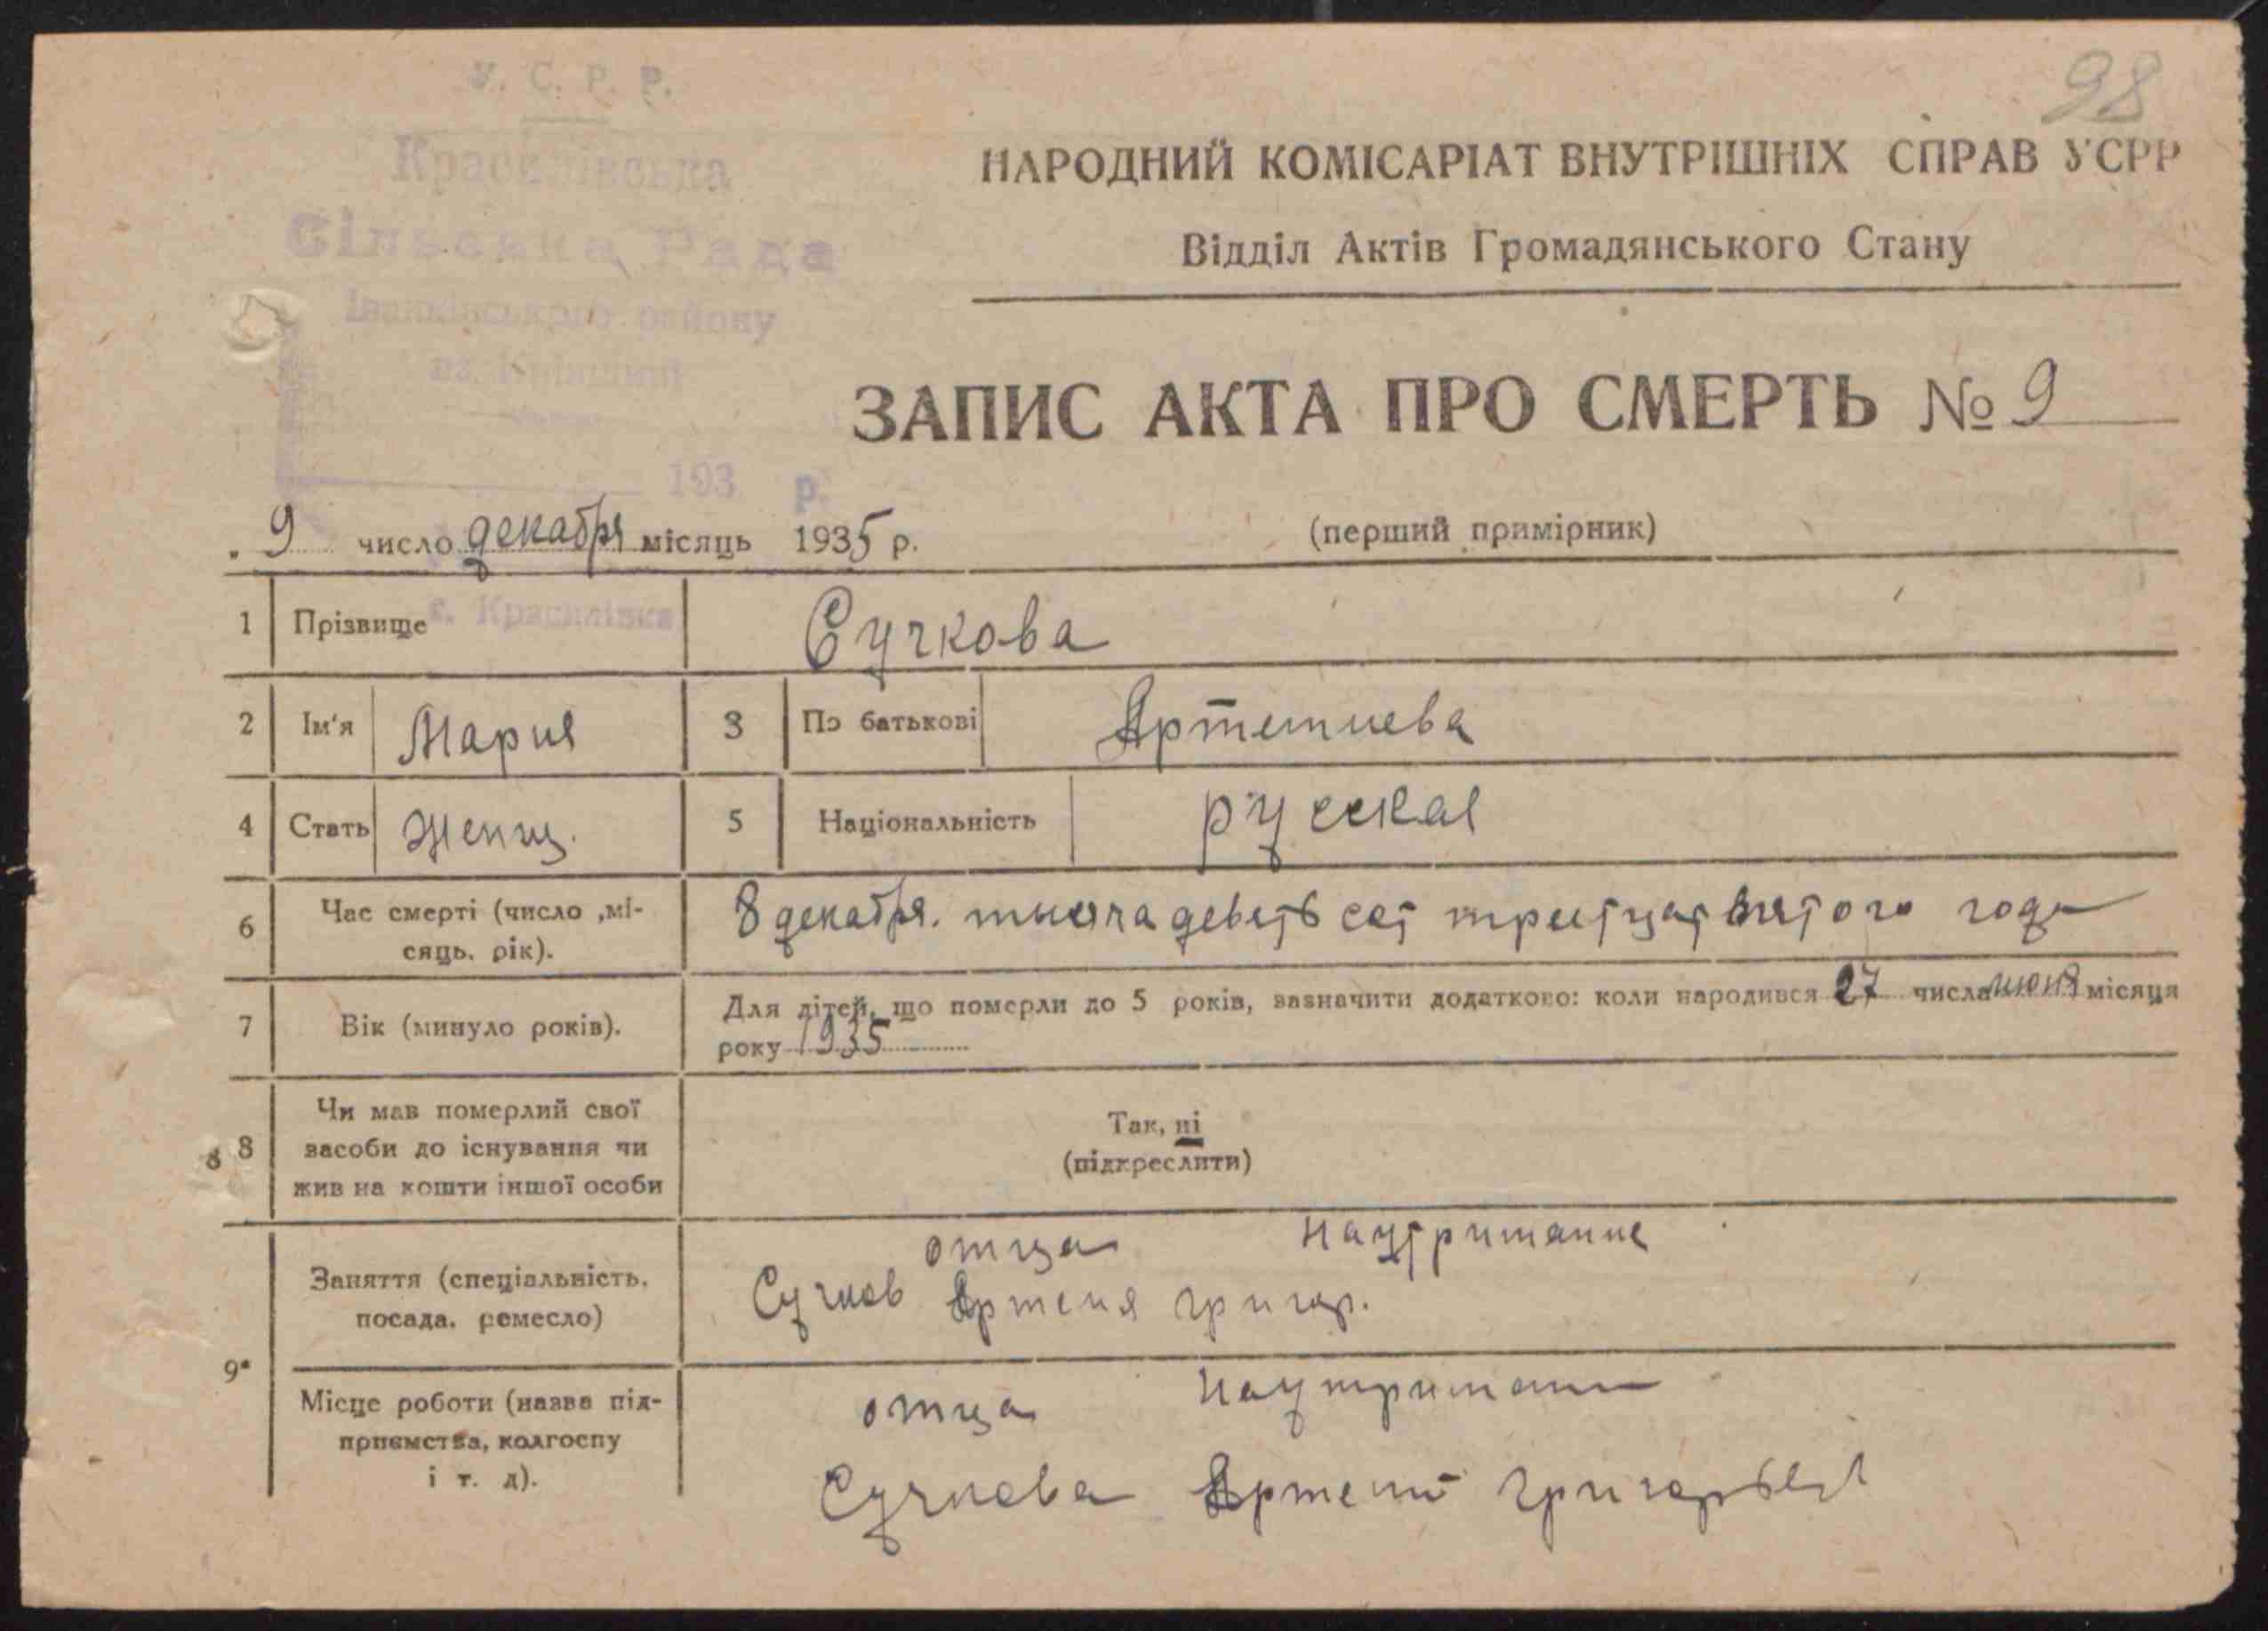 98
У. С. Р. Р.
Красилівська
Сільська Рада
Іванківського району
на Київщині
193 р.
с. Красилівка
НАРОДНИЙ КОМІСАРІАТ ВНУТРІШНІХ СПРАВ УСРР
Відділ Актів Громадянського Стану
ЗАПИС АКТА ПРО СМЕРТЬ № 9
9 число декабря місяць 1935 р.
(перший примірник)
1 Прізвище Сучкова
2 Ім'я Мария 3 По батькові Артемиева
4 Стать Женщ. 5 Національність русская
6 Час смерті (число ,мі-
сяць. рік).
8 декабря. тысяча деветь сот третцат пятого года
7 Вік (минуло років).
Для дітей, що померли до 5 років, зазначити додатково: коли народився 27 числа июня місяця
року 1935
8 Чи мав померлий свої
засоби до існування чи
жив на кошти іншої особи
Так, ні
(підкреслити)
9
Заняття (спеціальність.
посада. ремесло)
отца наутримание
Сучков Артемя григор.
Місце роботи (назва під-
приємства, колгоспу
і т. д).
отца
Сучкова Артемий